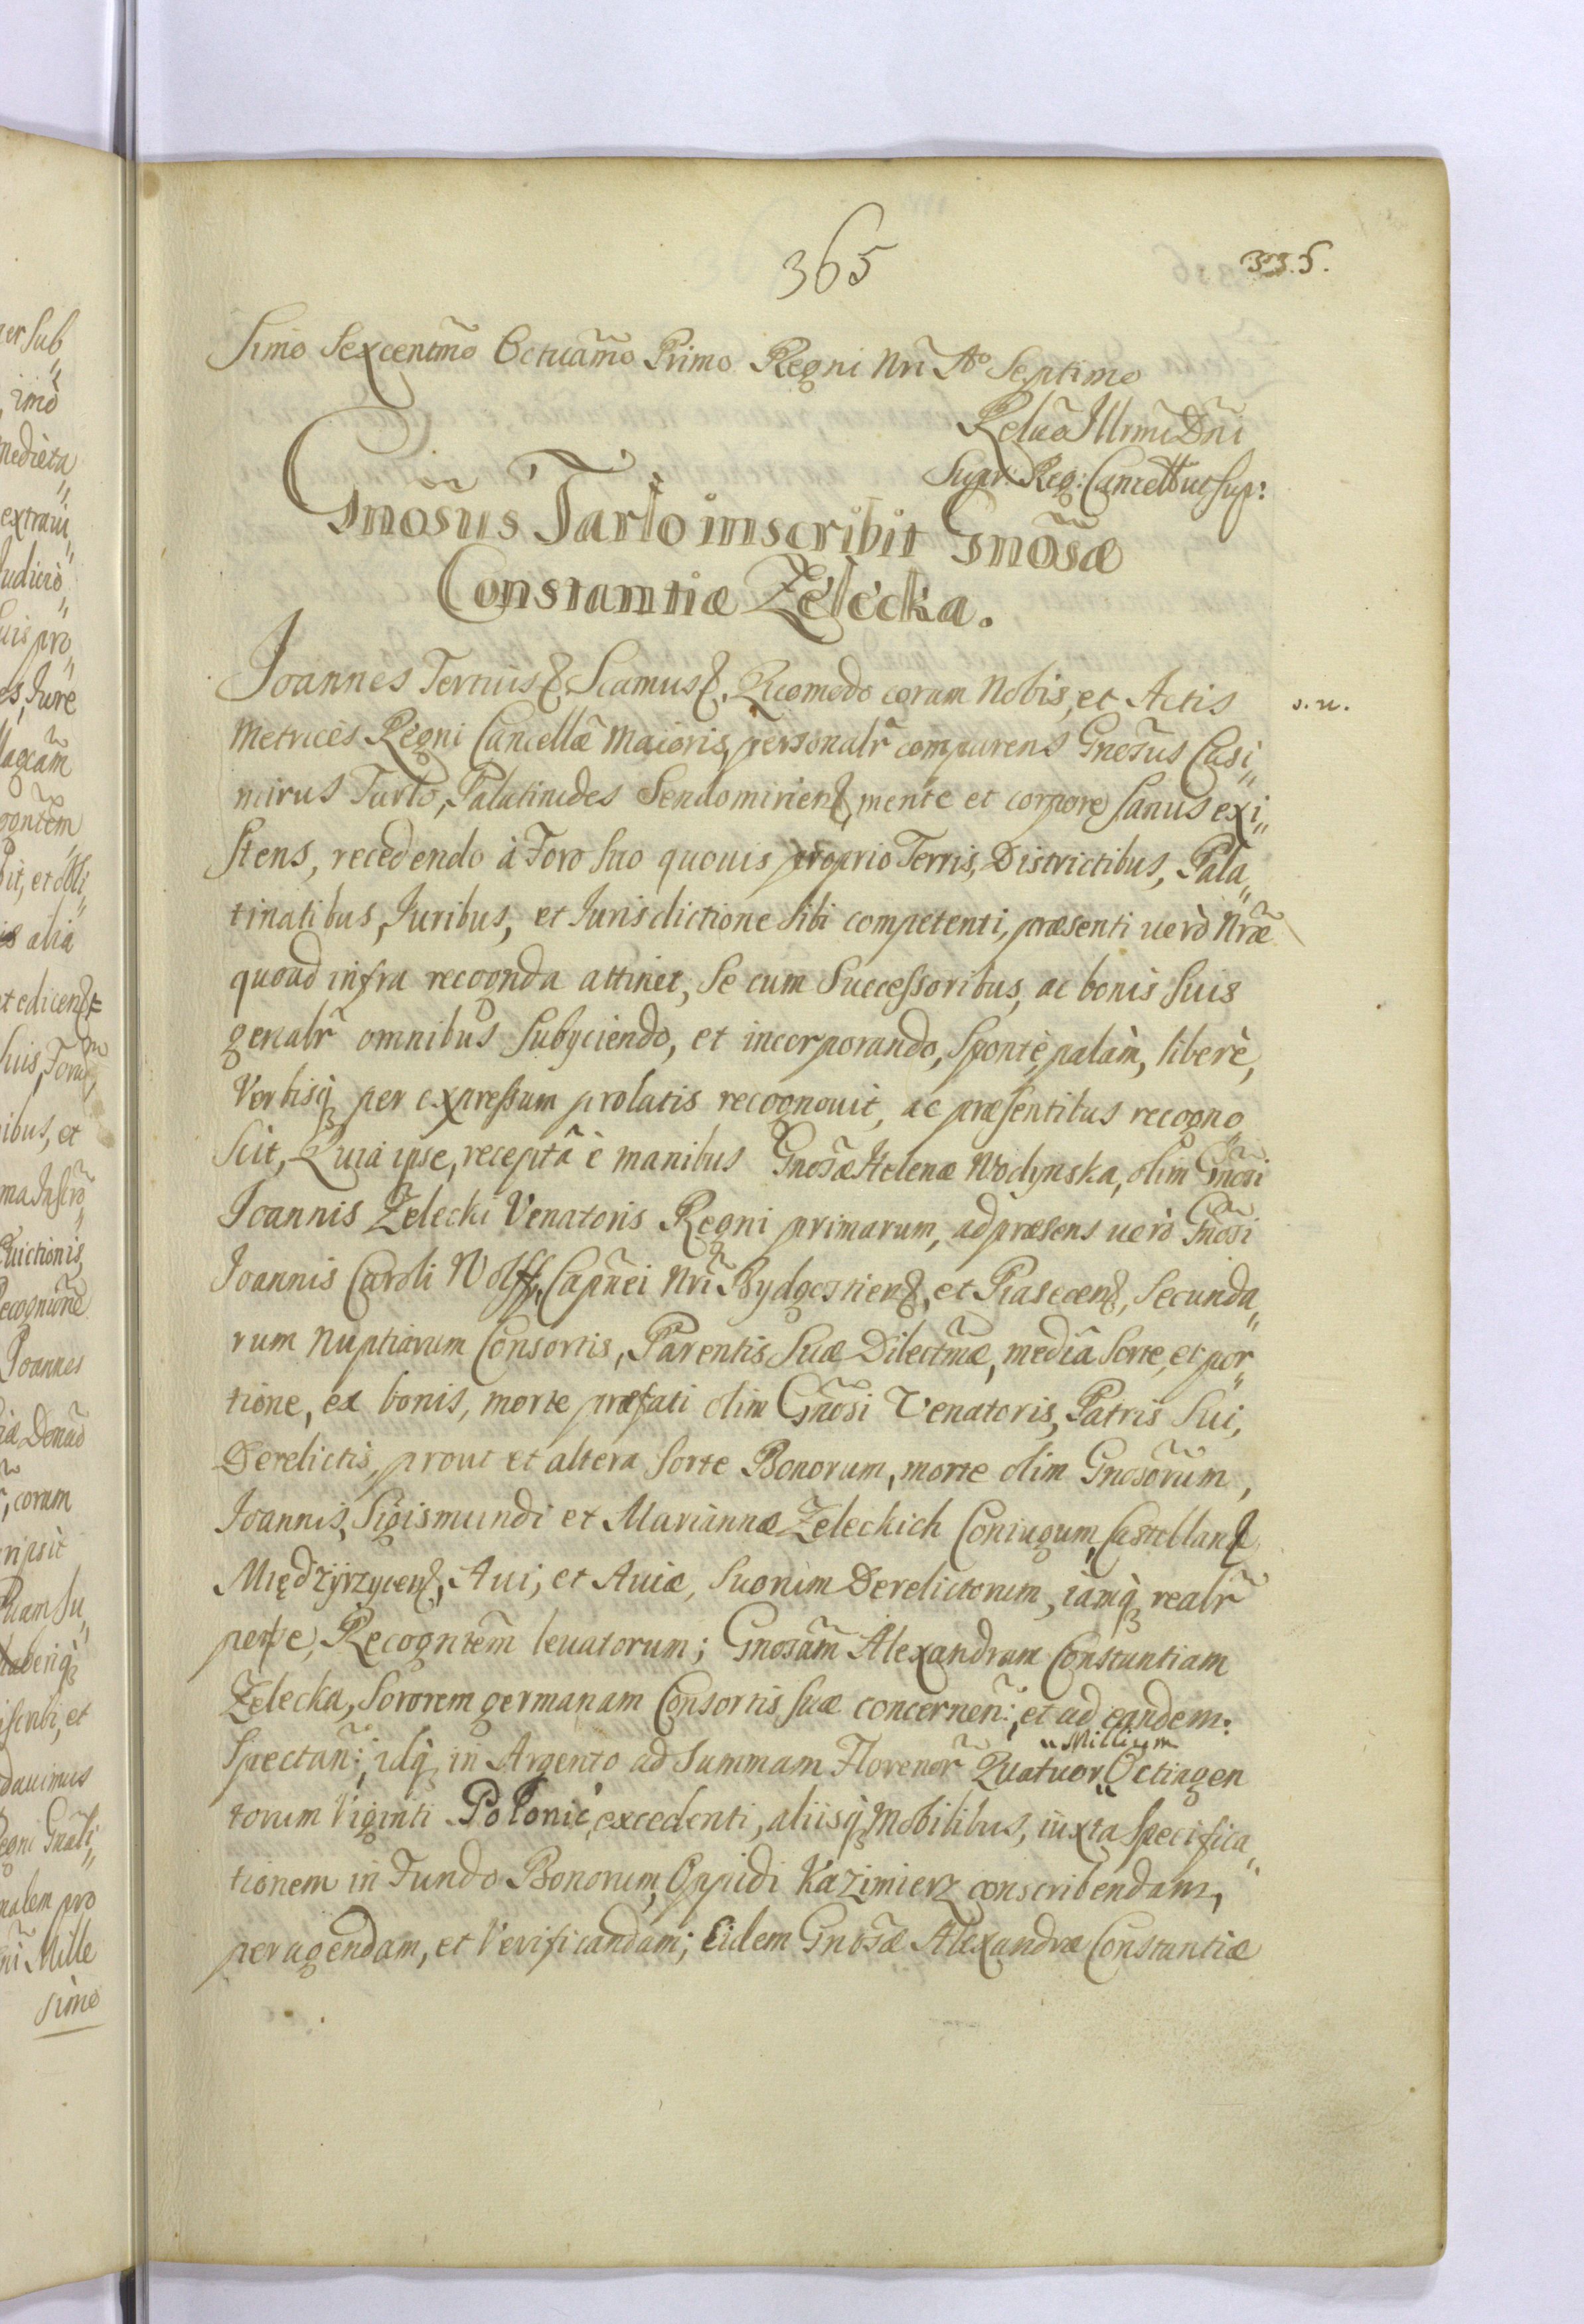 365
335.
simo Sexcentmo Octuamo Primo Regni Nri Ao Septimo
Relatio Illrmi Dni
Supr: Reg: Cancell ut sup:
Gnosus Tarło inscribit Gnosæ
Constantiæ Zelecka.
Joannes Tertius &. Scamus &. Quomodo coram Nobis, et Actis
s. n.
Metrices Regni Cancellæ Maioris, personalr comparens Gnosus Casi„
mirus Tarło, Palatinides Sendomirien, mente et corpore sanus exi„
stens, recedendo à Foro suo quouis proprio Terris, Districtibus, Pala„
tinatibus, Juribus, et Jurisdictione sibi competenti, præsenti uerò Nræ
quoad infra recognda attinet, se cum Successoribus, ac bonis suis
genalr omnibus subyciendo, et incorporando, sponte, palàm, liberè,
Verbisq per expressum prolatis recognouit, ac præsentibus recogno„
scit, Quia ipse, receptâ è manibus Gnosæ Helenæ Wodynska, olim Gnosi
Joannis Zelecki Venatoris Regni primarum, ad præsens uerò Gnosi
Joannis Caroli Wolff, Capnei Nri Bydgostien, et Piasecen, secunda„
rum nuptiarum Consortis, Parentis suæ Dilectmæ, mediâ sorte, et por„
tione, ex bonis, morte præfati olim Gnosi Venatoris, Patris sui,
Derelictis, prout et altera sorte Bonorum, morte olim Gnosorum,
Joannis, Sigismundi et Mariannæ Zeleckich Coniugum, Castellan
Międzyrzycen, Aui, et Auiæ, suorum Derelictorum, iamq realr
perse, Recogntem leuatorum; Gnosam Alexandram Constantiam
Zelecka, sororem germanam Consortis suæ concernen:, et ad eandem:
spectan:, idq in Argento ad summam Florenor Quatuor „Millium„ Octingen
torum Viginti Polonic excedenti, aliisq Mobilibus, iuxta specifica„
tionem in Fundo Bonorum, Oppidi Kazimierz conscribendam,
peragendam, et Verificandam; Eidem Gnosæ Alexandræ Constantiæ
er sub„
imò
medieta„
extraui„
Judiciò„
uis pro„
es, Jure
ogntem
it, et obli„
alia
et edicen
suis, Foru
ibus, et
ma Inscro„
Euictionis
ecognione
Joannes
coram
ripsit
Quam su„
haberiq
scribi, et
dauimus
egni Gnali„
nalem pro
Mille
simo